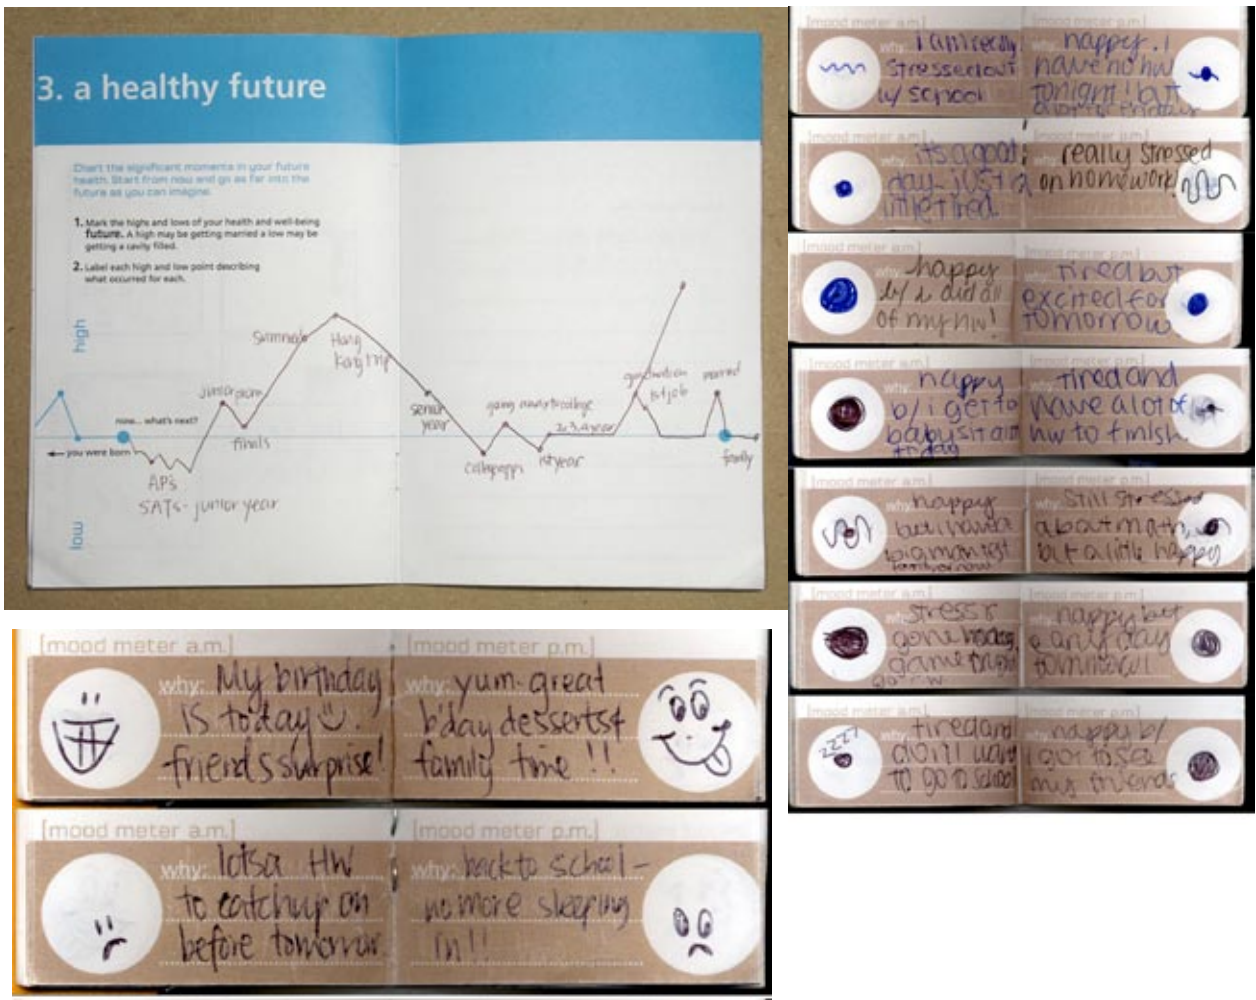 3. a healthy future
Chart the significant moments in your future
health. Start from now and go as far into the
future as you can imagine.
1. Mark the highs and lows of your health and well-being
future. A high may be getting married a low may be
getting a cavity filled.
2. Label each high and low point describing
what occurred for each.
high
low
now... what's next?
you were born
APs
SATs - junior year
junior prom
finals
Summer
Hong
Kong trip
senior
year
college apps
going away to college
1st year
2, 3, 4 year
graduation
1st job
married
family
[mood meter a.m.]
why: My birthday
is today
friends surprise!
[mood meter p.m.]
why: yum-great
b'day desserts &
family time !!
[mood meter a.m.]
why: lotsa HW
to catchup on
before tomorrow.
[mood meter p.m.]
why: back to school -
no more sleeping
in!!
[mood meter a.m.]
why: i am really
stressed out
w/ school
[mood meter p.m.]
why: happy. i
have no hw
tonight! but
[mood meter a.m.]
why: its a good
day- just a
little tired.
[mood meter p.m.]
really stressed
on homework!
[mood meter a.m.]
why: happy
b/ i did all
of my hw!
[mood meter p.m.]
why: tired but
excited for
tomorrow
[mood meter a.m.]
why: happy
b/ i get to
babysit
today
[mood meter p.m.]
why: tired and
have a lot of
hw to finish.
[mood meter a.m.]
why: happy
but i have a
big math test
tomorrow
[mood meter p.m.]
why: still stressed
about math,
but a little happy
[mood meter a.m.]
why: stress
gone
game
[mood meter p.m.]
why: happy but
early day
tomorrow!
[mood meter a.m.]
zzzz
why: tired and
don't want
to go to school
[mood meter p.m.]
why: happy b/
i got to see
my friends